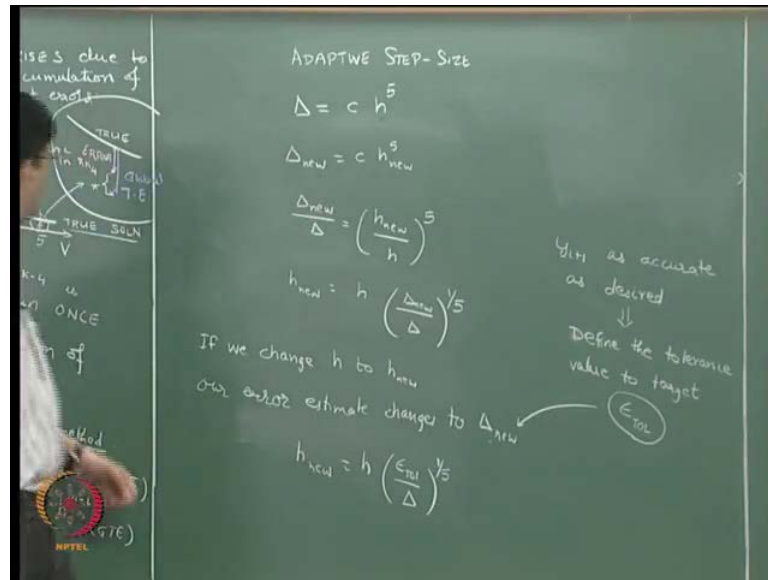 ISES due to
cumulation of
errors
TRUE
ERROR
in RK4
T.E
TRUE SOLN
5 V
K-4 is
ONCE
of
method
GTE)
ADAPTIVE STEP-SIZE
Δ = c h^5
Δ_new = c h_new^5
Δ_new / Δ = (h_new / h)^5
h_new = h (Δ_new / Δ)^1/5
If we change h to h_new
our error estimate changes to Δ_new
h_new = h (ε_tol / Δ)^1/5
y_i+1 as accurate
as desired
⇓
Define the tolerance
value to target
ε_TOL
NPTEL